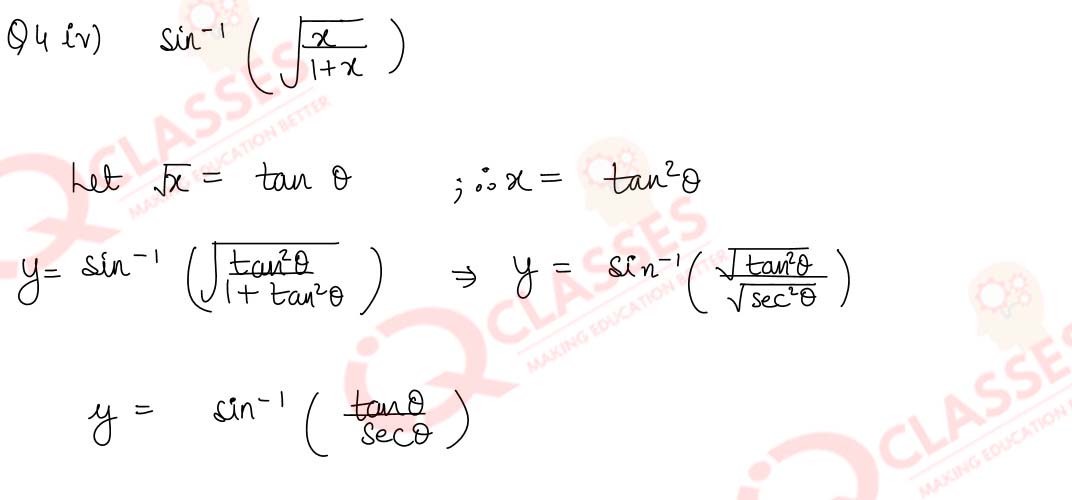 Q4 iv) sin⁻¹ (√(x/(1+x)))
Let √x = tan θ ; ∴ x = tan²θ
y = sin⁻¹ (√(tan²θ/(1 + tan²θ))) ⇒ y = sin⁻¹ (√tan²θ/√sec²θ)
y = sin⁻¹ (tanθ/secθ)
QCLASSES
MAKING EDUCATION BETTER
QCLASSES
MAKING EDUCATION BETTER
QCLASSES
MAKING EDUCATION